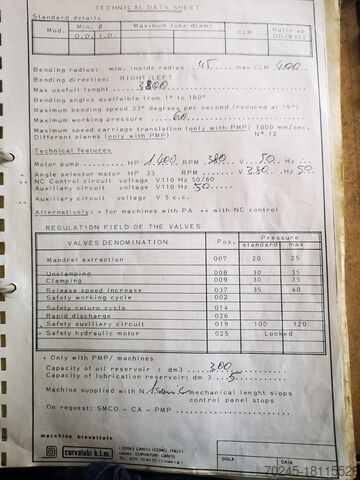 TECHNICAL DATA SHEET
Standard details
Mod. Min. Ø Maximum tube diam/ CLR Ratio as
O.D. I.D. OD/WALL
Bending radius: min. inside radius 45 max CLR 400
Bending direction: RIGHT/LEFT
Max usefull lenght 3800
Bending angles available from 1° to 180°
Maximum bending speed 33° degrees per second (reduced at 9°)
Maximum working pressure 60
Maximum speed carriage translation (only with PMP) 1000 mm/sec.
Different planes (only with PMP) N° 12
Technical features
Motor pump HP 1.400 RPM 380 V 50 Hz
Angle selector motor HP 33 RPM V 380 Hz 50
NC Control circuit voltage V110 Hz 50/60
Auxiliary circuit voltage V110 Hz 50
Auxiliary circuit voltage V 5 c.c.
Alternatively: + for machines with PA ++ with NC control
REGULATION FIELD OF THE VALVES
VALVES DENOMINATION Pos. Pressure
standard max
Mandrel extraction 007 20 25
Unclamping 008 30 35
Clamping 009 30 35
Release speed increase 037 35 40
Safety working cycle 002
Safety return cycle 014
Rapid discharge 026
Safety auxiliary circuit 019 100 120
Safety hydraulic motor 025 Locked
+ Only with PMP/ machines
Capacity of oil reservoir : dm3 300
Capacity of lubrication reservoir: dm 3 5
Machine supplied with N mechanical lenght stops
control panel stops
On request: SMCO - CA - PMP
macchine brevettate
curvatubi b.l.m.
22063 CANTU (COMO, ITALY)
SIGLA DATA
70245-18115526